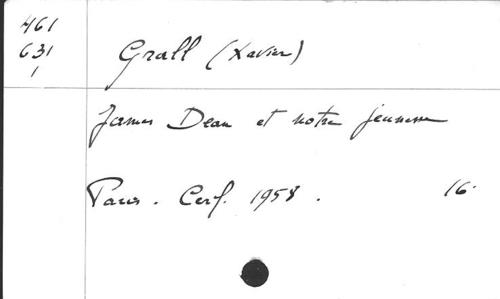 461
631
1
Grall (Xavier)
James Dean et notre jeunesse
Paris. Cerf. 1958.
16.